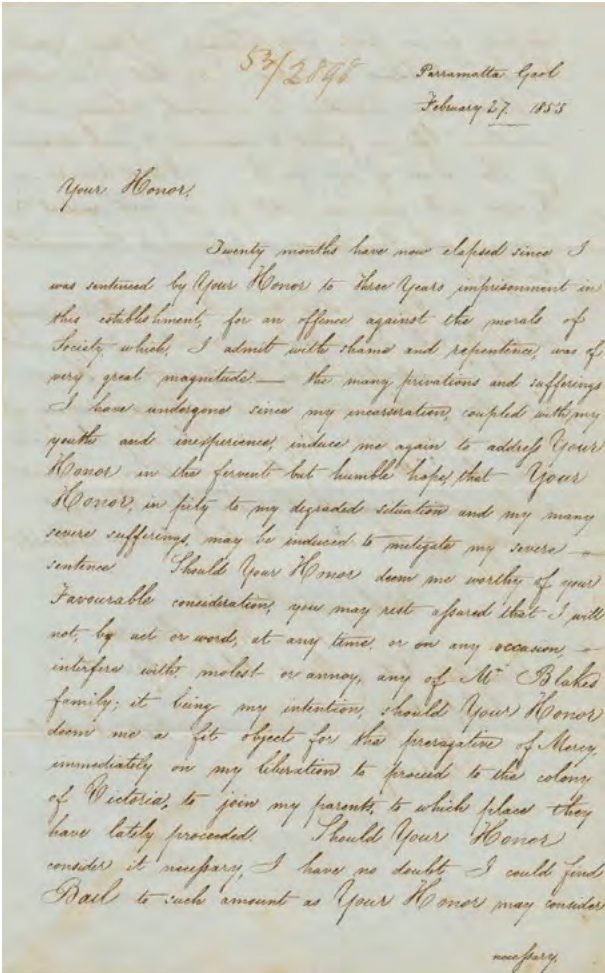 53/2898
Parramatta Gaol
February 27. 1853
Your Honor,
Twenty months have now elapsed since I
was sentenced by Your Honor to three Years imprisonment in
this establishment, for an offence against the morals of
Society which, I admit with shame and repentence, was of
very great magnitude. — the many privations and sufferings
I have undergone since my incarseration, coupled with my
youth and inexperience, induce me again to address Your
Honor in the fervent but humble hope, that Your
Honor, in pity to my degraded situation and my many
severe sufferings, may be induced to metigate my severe —
sentence Should Your Honor deem me worthy of your
Favourable consideration, you may rest assared that I will
not, by act or word, at any time, or on any occasion, —
interfere with, molest or annoy, any of Mr Blakes
family; it being my intention, should Your Honor
deem me a fit object for the preragative of Mercy,
immediately on my liberation to proceed to the colony
of Victoria, to join my parents, to which place they
have lately proceeded. Should Your Honor
consider it necessary, I have no doubt I could find
Bail to such amount as Your Honor may consider
necessary.